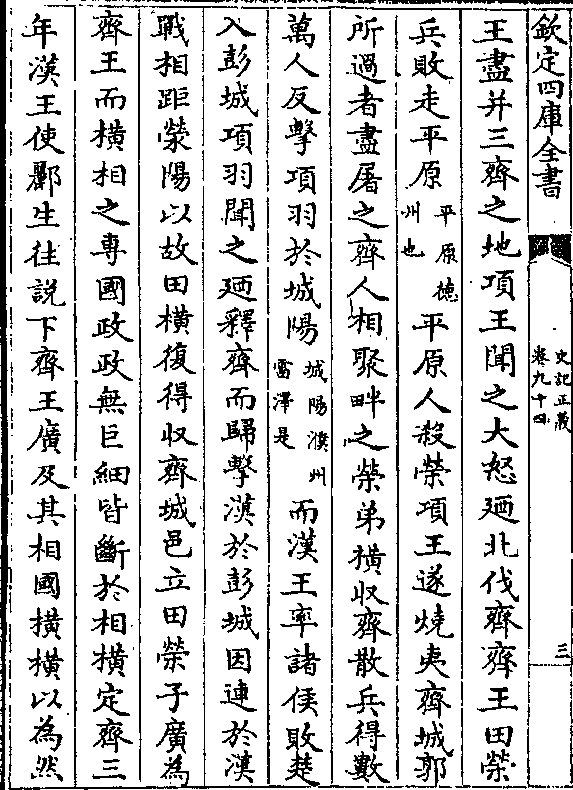 欽定四庫全書
史記正義
卷九十四
三
王盡并三齊之地項王聞之大怒廼北伐齊齊王田榮
兵敗走平原平原德州也平原人殺榮項王遂燒夷齊城郭
所過者盡屠之齊人相聚畔之榮弟橫收齊散兵得數
萬人反擊項羽於城陽城陽濮州雷澤是而漢王率諸侯敗楚
入彭城項羽聞之廼釋齊而歸擊漢於彭城因連於漢
戰相距滎陽以故田橫復得收齊城邑立田榮子廣為
齊王而橫相之專國政政無巨細皆斷於相橫定齊三
年漢王使酈生往說下齊王廣及其相國橫橫以為然